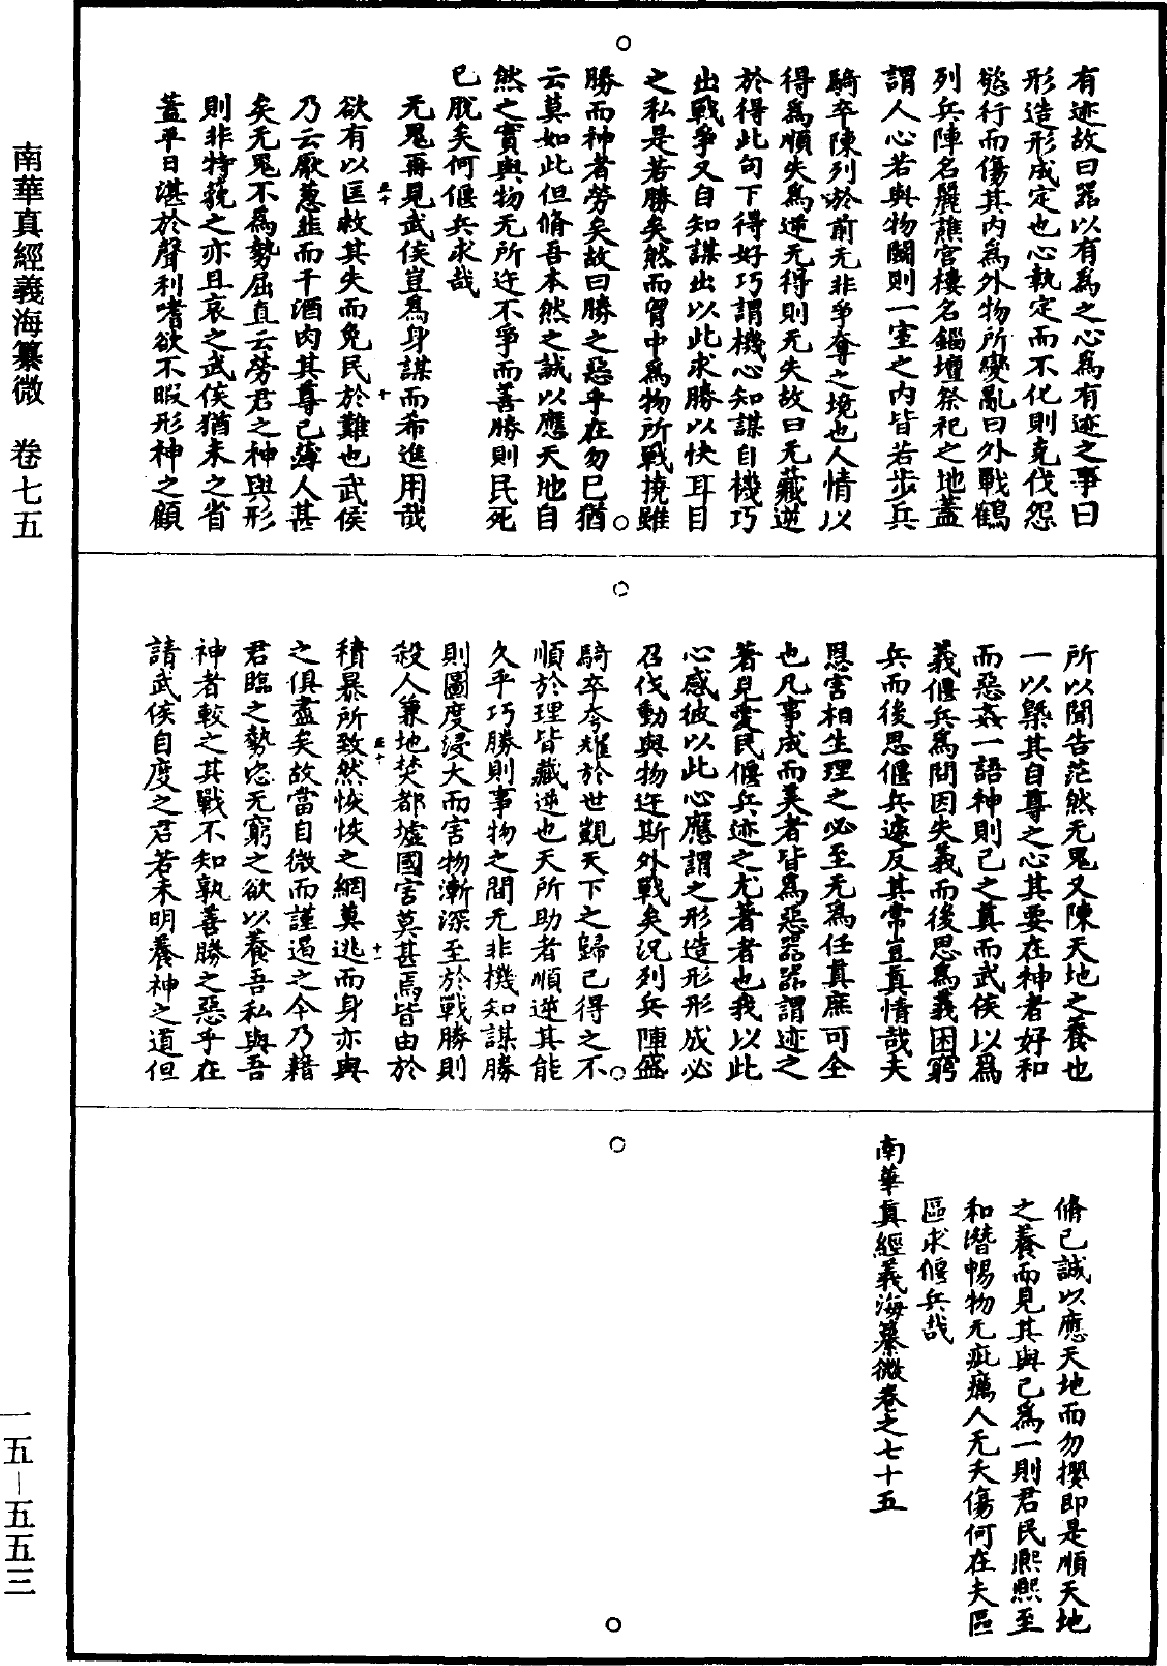 有迹故曰器以有為之心為有迹之事曰
形造形成定也心執定而不化則克伐怨
慾行而傷其内為外物所變亂曰外戰鶴
列兵陣名麗譙宫樓名錙壇祭祀之地蓋
謂人心若與物鬭則一室之内皆若步兵
騎卒陳列於前无非爭奪之境也人情以
得為順失為逆无得則无失故曰无藏逆
於得此句下得好巧謂機心知謀自機巧
出戰爭又自知謀出以此求勝以快耳目
之私是若勝矣然而胷中為物所戰撓雖
勝而神者勞矣故曰勝之惡乎在勿已猶
云莫如此但脩吾本然之誠以應天地自
然之實與物无所迕不爭而善勝則民死
已脫矣何偃兵求哉
无鬼再見武侯豈為身謀而希進用哉
欲有以匡救其失而免民於難也武侯
乃云厭葱韭而干酒肉其尊已薄人甚
矣无鬼不為勢屈直云勞君之神與形
則非特藐之亦且哀之武侯猶未之省
蓋平日湛於聲利嗜欲不暇形神之顧
所以聞告茫然无鬼又陳天地之養也
一以槩其自尊之心其要在神者好和
而惡姦一語神則己之真而武侯以為
義偃兵為問因失義而後思為義困窮
兵而後思偃兵遽反其常豈真情哉夫
恩害相生理之必至无為任真庶可全
也凡事成而美者皆為惡器器謂迹之
著見愛民偃兵迹之尤著者也我以此
心感彼以此心應謂之形造形形成必
召伐動與物迕斯外戰矣況列兵陣盛
騎卒夸耀於世觀天下之歸己得之不
順於理皆藏逆也天所助者順逆其能
久乎巧勝則事物之間无非機知謀勝
則圖度浸大而害物漸深至於戰勝則
殺人兼地焚都墟國害莫甚焉皆由於
積暴所致然恢恢之網莫逃而身亦與
之俱盡矣故當自微而謹遏之今乃藉
君臨之勢恣无窮之欲以養吾私與吾
神者較之其戰不知孰善勝之惡乎在
請武侯自度之君若未明養神之道但
脩己誠以應天地而勿攖即是順天地
之養而見其與己為一則君民熙熙至
和潛暢物无疵癘人无夭傷何在夫區
區求偃兵哉
南華真經義海纂微卷之七十五
南華真經義海纂微 卷七五
一五—五五三